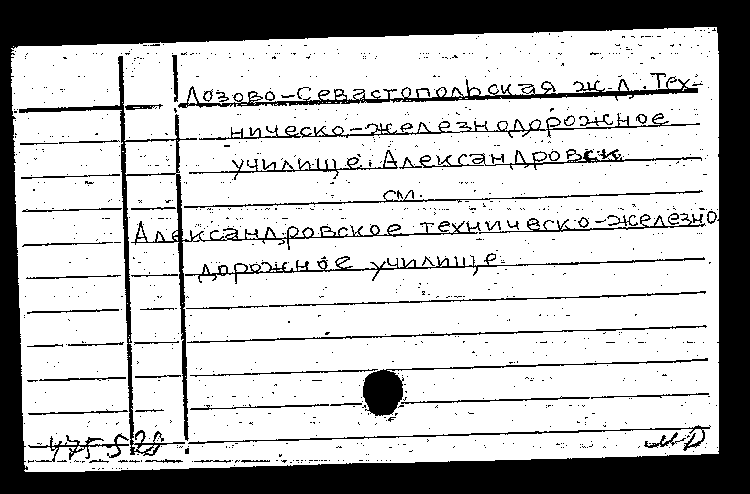 Лозово-Севастопольская ж.д. Тех-
ническо-железнодорожное
училище. Александровск
см.
Александровское техническо-железно
дорожное училище.
475-520